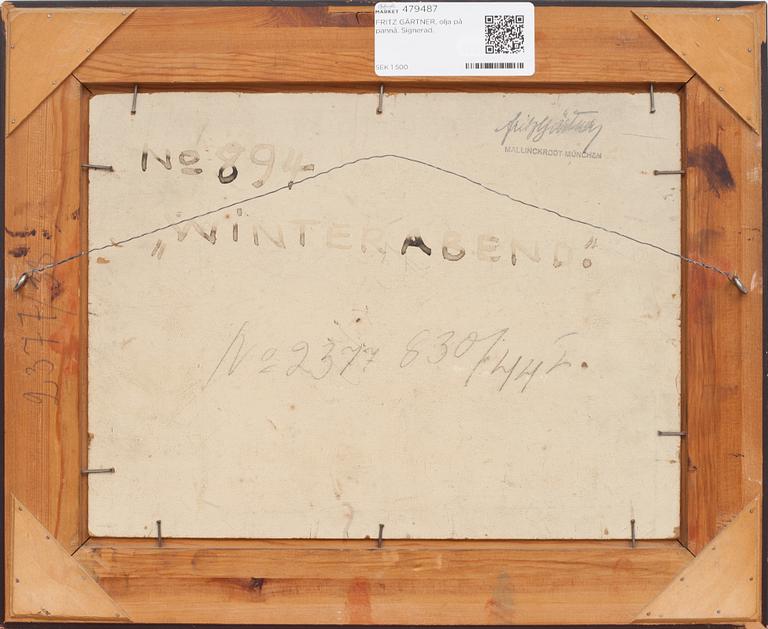 MARKET 479487
FRITZ GÄRTNER, olja på
pannå. Signerad.
SEK 1 500
fritz Gärtner
MALLINCKRODT-MÜNCHEN
No 894
„WINTERABEND."
No 2377 830/44
2377/38